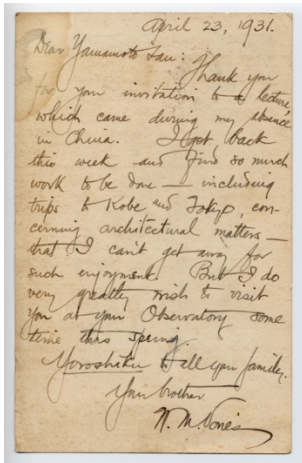 April 23, 1931.
Dear Yamamoto San: Thank you
for your invitation to a lecture,
which came during my absence
in China. I got back
this week and find so much
work to be done — including
trips to Kobe and Tokyo, con-
cerning architectural matters —
that I can't get away for
such enjoyment. But I do
very greatly wish to visit
you at your Observatory some
time this spring.
Yoroshiku to all your family.
Your brother
W. M. Vories